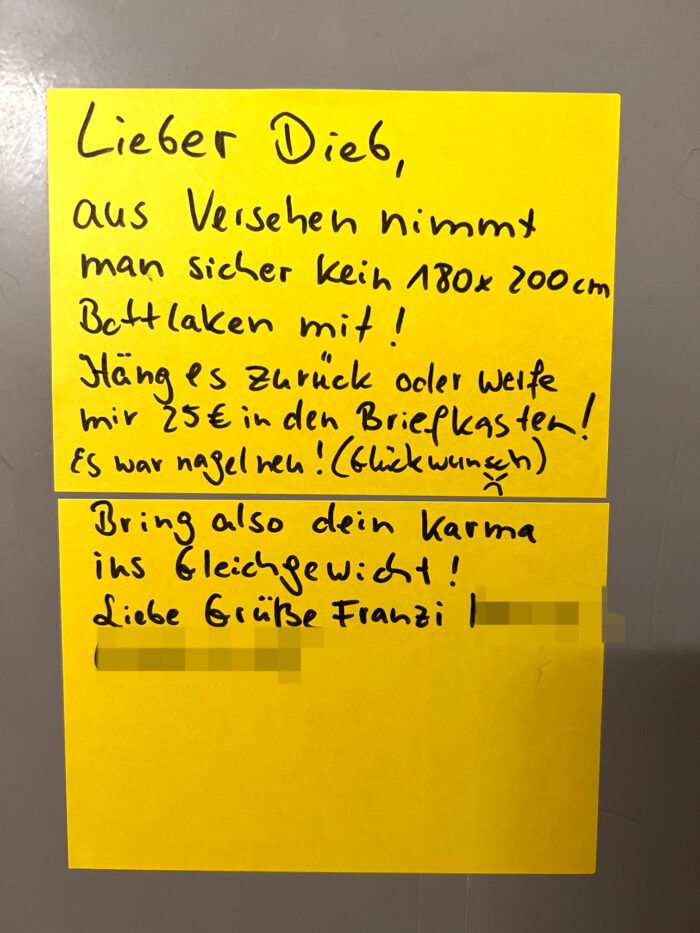 Lieber Dieb,
aus Versehen nimmt
man sicher kein 180x200cm
Bettlaken mit!
Häng es zurück oder werfe
mir 25€ in den Briefkasten!
Es war nagelneu! (Glückwunsch)
Bring also dein Karma
ins Gleichgewicht!
Liebe Grüße Franzi